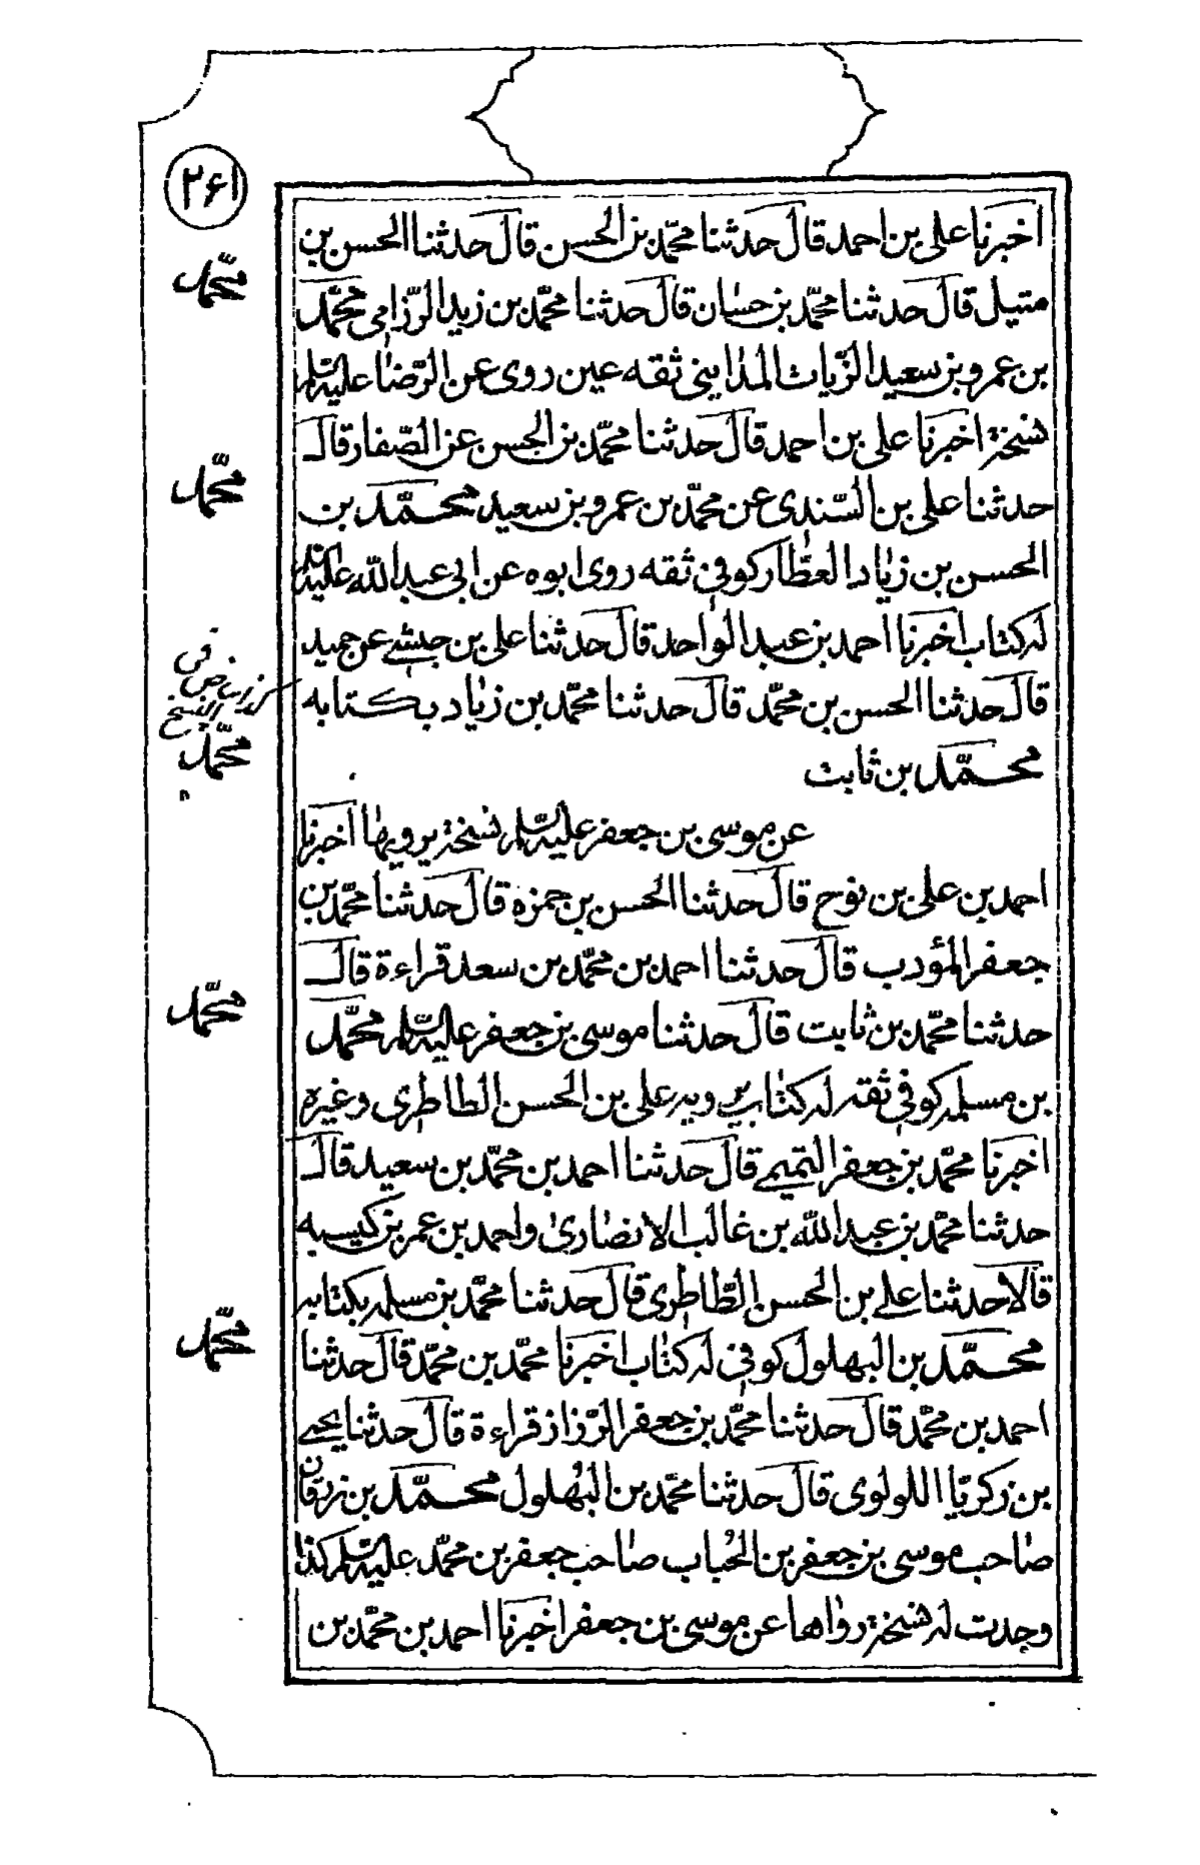 ٢٦١
اخبرنا على بن احمد قال حدثنا محمّد بن الحسن قال حدثنا الحسن بن
محمّد
متيل قال حدثنا محمّد بن حسان قال حدثنا محمّد بن زيد الرّزامى محمّد
بن عمرو بن سعيد الزّيات المدايني ثقه عين روى عن الرّضا عليه السّلم
نسخة اخبرنا على بن احمد قال حدثنا محمّد بن الحسن عن الصّفار قال
محمّد
حدثنا على بن السّندى عن محمّد بن عمرو بن سعيد محمّد بن
الحسن بن زياد العطّار كوفى ثقه روى ابوه عن ابى عبد الله عليه السلم
له كتاب اخبرنا احمد بن عبد الواحد قال حدثنا على بن حبشى عن حميد
قال حدثنا الحسن بن محمّد قال حدثنا محمّد بن زياد بكتابه
محمّد
محمّد بن ثابت
عن موسى بن جعفر عليه السّلم نسخة يرويها اخبرنا
احمد بن على بن نوح قال حدثنا الحسن بن حمزه قال حدثنا محمّد بن
جعفر المؤدب قال حدثنا احمد بن محمّد بن سعد قراءة قال
محمّد
حدثنا محمّد بن ثابت قال حدثنا موسى بن جعفر عليه السّلم محمّد
بن مسلمه كوفى ثقه له كتاب يرويه على بن الحسن الطاطرى وغيره
اخبرنا محمّد بن جعفر التميمى قال حدثنا احمد بن محمّد بن سعيد قال
حدثنا محمّد بن عبد الله بن غالب الانصارى واحمد بن عمر بن كيسبه
قالا حدثنا على بن الحسن الطّاطرى قال حدثنا محمّد بن مسلمه بكتابه
محمّد
محمّد بن البهلول كوفى له كتاب اخبرنا محمّد بن محمّد قال حدثنا
احمد بن محمّد قال حدثنا محمّد بن جعفر الرّزاز قراءة قال حدثنا يحيى
بن زكريّا اللولوى قال حدثنا محمّد بن البهلول محمّد بن زرقان
صاحب موسى بن جعفر بن الحُباب صاحب جعفر بن محمّد عليه السّلم كذا
وجدت له نسخة رواها عن موسى بن جعفر اخبرنا احمد بن محمّد بن